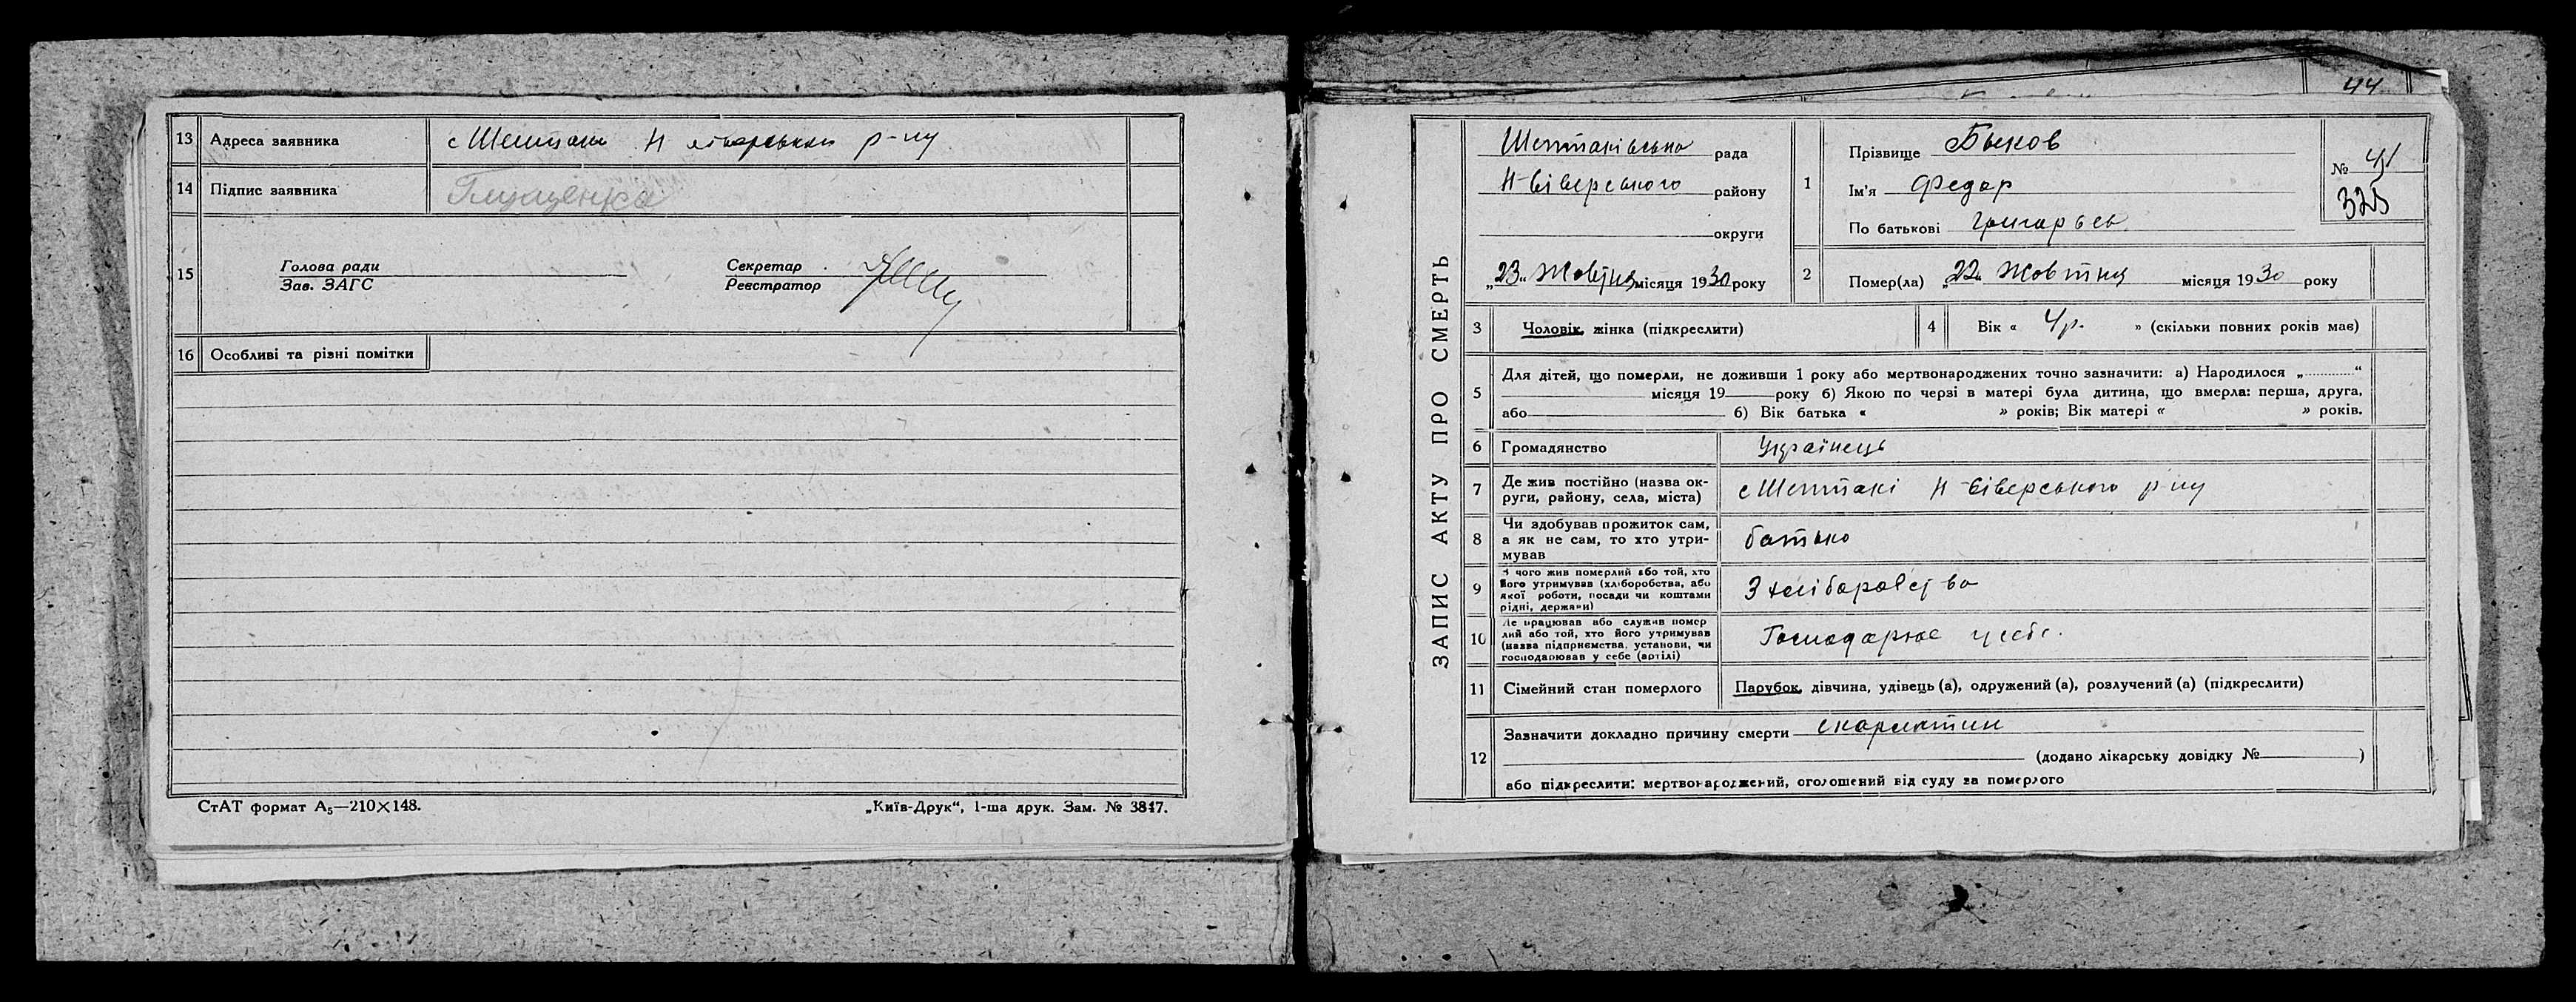 13 Адреса заявника с Шептаки Н сіверський р-ну
14 Підпис заявника
15 Голова ради
Зав. ЗАГС
Секретар
Реєстратор
16 Особливі та різні помітки
СтАТ формат А₅—210×148.
„Київ-Друк“, 1-ша друк. Зам. № 3847.
44
ЗАПИС АКТУ ПРО СМЕРТЬ
Шептаківська рада
Н-Сіверського району
округи
„23„ Жовтня місяця 1930 року
1 Прізвище Быков
Ім'я Федор
По батькові
№ 41
325
2 Помер(ла) „22„ Жовтня місяця 1930 року
3 Чоловік, жінка (підкреслити)
4 Вік « 4р. » (скільки повних років має)
5 Для дітей, що померли, не доживши 1 року або мертвонароджених точно зазначити: а) Народилося „............“
місяця 19 року б) Якою по черзі в матері була дитина, що вмерла: перша, друга,
або б) Вік батька « » років; Вік матері « » років.
6 Громадянство Українець
7 Де жив постійно (назва ок-
руги, району, села, міста) с Шептакі Н-Сіверського р-ну
8 Чи здобував прожиток сам,
а як не сам, то хто утри-
мував батько
9 З чого жив померлий або той, хто
його утримував (хліборобства, або
якої роботи, посади чи коштами
рідні, держави) З хліборобства
10 Де працював або служив помер
лий або той, хто його утримував
(назва підприємства, установи, чи
господарював у себе (артілі) Господарює у себе.
11 Сімейний стан померлого Парубок, дівчина, удівець (а), одружений (а), розлучений (а) (підкреслити)
12 Зазначити докладно причину смерти скарлатин
(додано лікарську довідку № )
або підкреслити: мертвонароджений, оголошений від суду за померлого